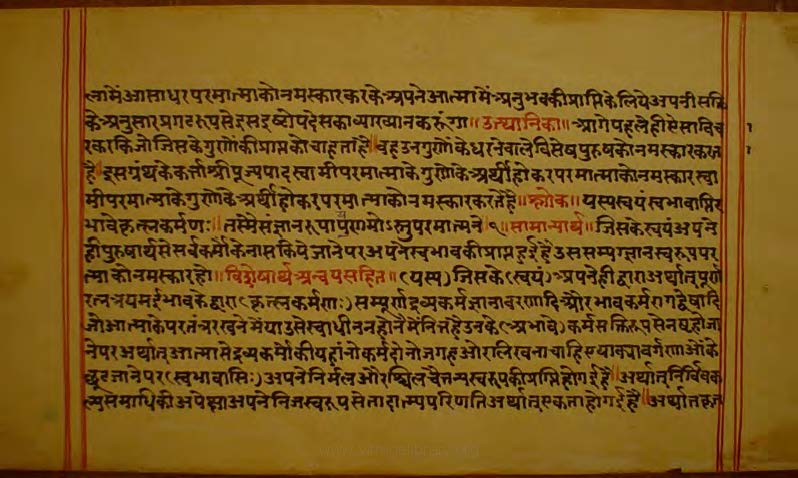 लामें आत्माधर परमात्माको नमस्कार करके अपने आत्मामें अनुभवकी प्राप्तिके लिये अपनी सक्ति
के अनुसार प्रगटरूपसे इस इष्टोपदेसका व्याख्यान करुंगा॥ उत्थानिका॥ आगे पहले ही ऐसा विच
रकरकि जो जिसके गुणोंकी प्राप्तको चाहता है॥ वह उन गुणोंके धरनेवाले विसेष पुरुषको नमस्कार करता
है॥ इस ग्रंथके कर्त्ता श्री पूज्यपादस्वामी परमात्माके गुणोंके अर्थी होकर परमात्माको नमस्कार स्वा
मी परमात्माके गुणोंके अर्थी होकर परमात्माको नमस्कार करते हैं॥ श्लोक॥ यस्य स्वयं स्वभावाप्तिर
भावे कृत्स्नकर्मणः॥ तस्मै संज्ञानरूपाय नमोऽस्तु परमात्मने १॥ सामान्यार्थ॥ जिसके स्वयं अपने
ही पुरुषार्थसे सर्व कर्मोंके नास किये जानेपर अपने स्वभावकी प्राप्त हुई है उस सम्यग्ज्ञान स्वरूप पर
मात्माको नमस्कार हो॥ विशेषार्थ अन्वय सहित॥ (यस्य) जिसके (स्वयं) अपने ही द्वारा अर्थात् पूर्ण
रत्नत्रयमई भावके द्वारा (कृत्स्नकर्मणः) सम्पूर्ण द्रव्यकर्म ज्ञानावरणादि और भावकर्म रागद्वेषादि
जो आत्माके परतंत्र रखनेमें या उसे स्वाधीन न होनेमें निमित्त है उनके (अभावे) कर्म सक्तिरूपसे नष्ट हो जा
नेपर अर्थात् आत्मासे द्रव्यकर्मोंकी यहां नोकर्म दोनो जगह और लिखना चाहिए या क्या वर्गणाओंके
छूट जानेपर (स्वभावाप्तिः) अपने निर्मल और निश्चल चैतन्य स्वरूपकी प्राप्ति हो गई है॥ अर्थात् निर्विक
ल्प समाधिकी अपेक्षा अपने निज स्वरूपसे तादात्म्य परिणति अर्थात् एकता हो गई है॥ अर्थात् कृत